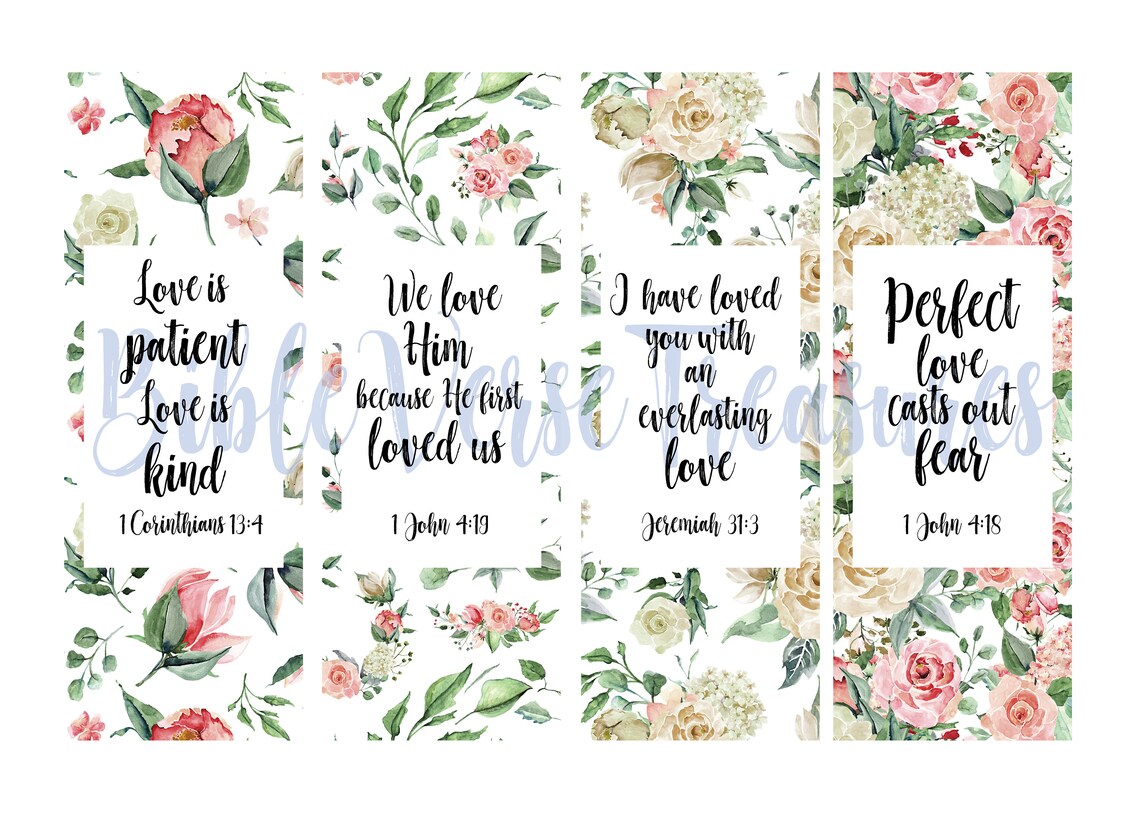 Love is
patient
Love is
kind
1 Corinthians 13:4
We love
Him
because He first
loved us
1 John 4:19
I have loved
you with
an
everlasting
love
Jeremiah 31:3
Perfect
love
casts out
fear
1 John 4:18
Bible Verse Treasures